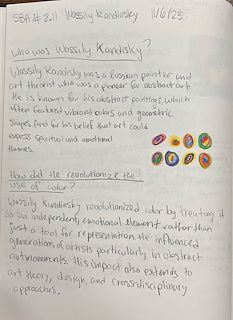 SBA # 2.11 Wassily Kandinsky 11/6/25
Who was Wassily Kandisky?
Wassily Kandisky was a Russian painter and
art theorist who was a pioneer for abstract art.
He is known for his abstract paintings, which
often featured vibrant colors and geometric
shapes. And for his belief that art could
express spiritual and emotional
themes.
How did the revolutionize the
use of color?
Wassily Kandinsky revolutionized color by treating it
as an independent, emotional element rather than
just a tool for representation. He influenced
generations of artists particularly in abstract
art movements. His impact also extends to
art theory, design, and cross-disciplinary
approaches.